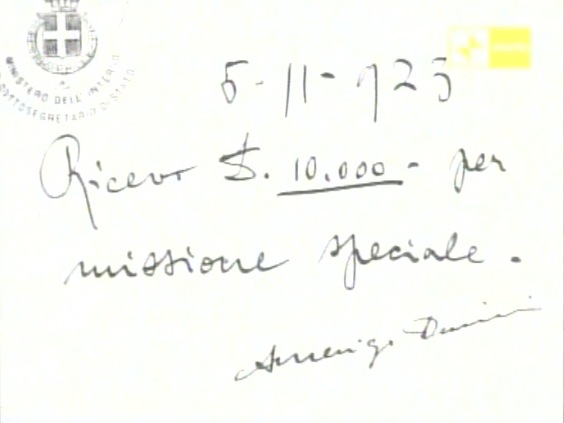 MINISTERO DELL'INTERNO
SOTTOSEGRETARIO DI STATO
5-11-923
Ricevo £. 10.000- per
missione speciale.
Amerigo Dumini